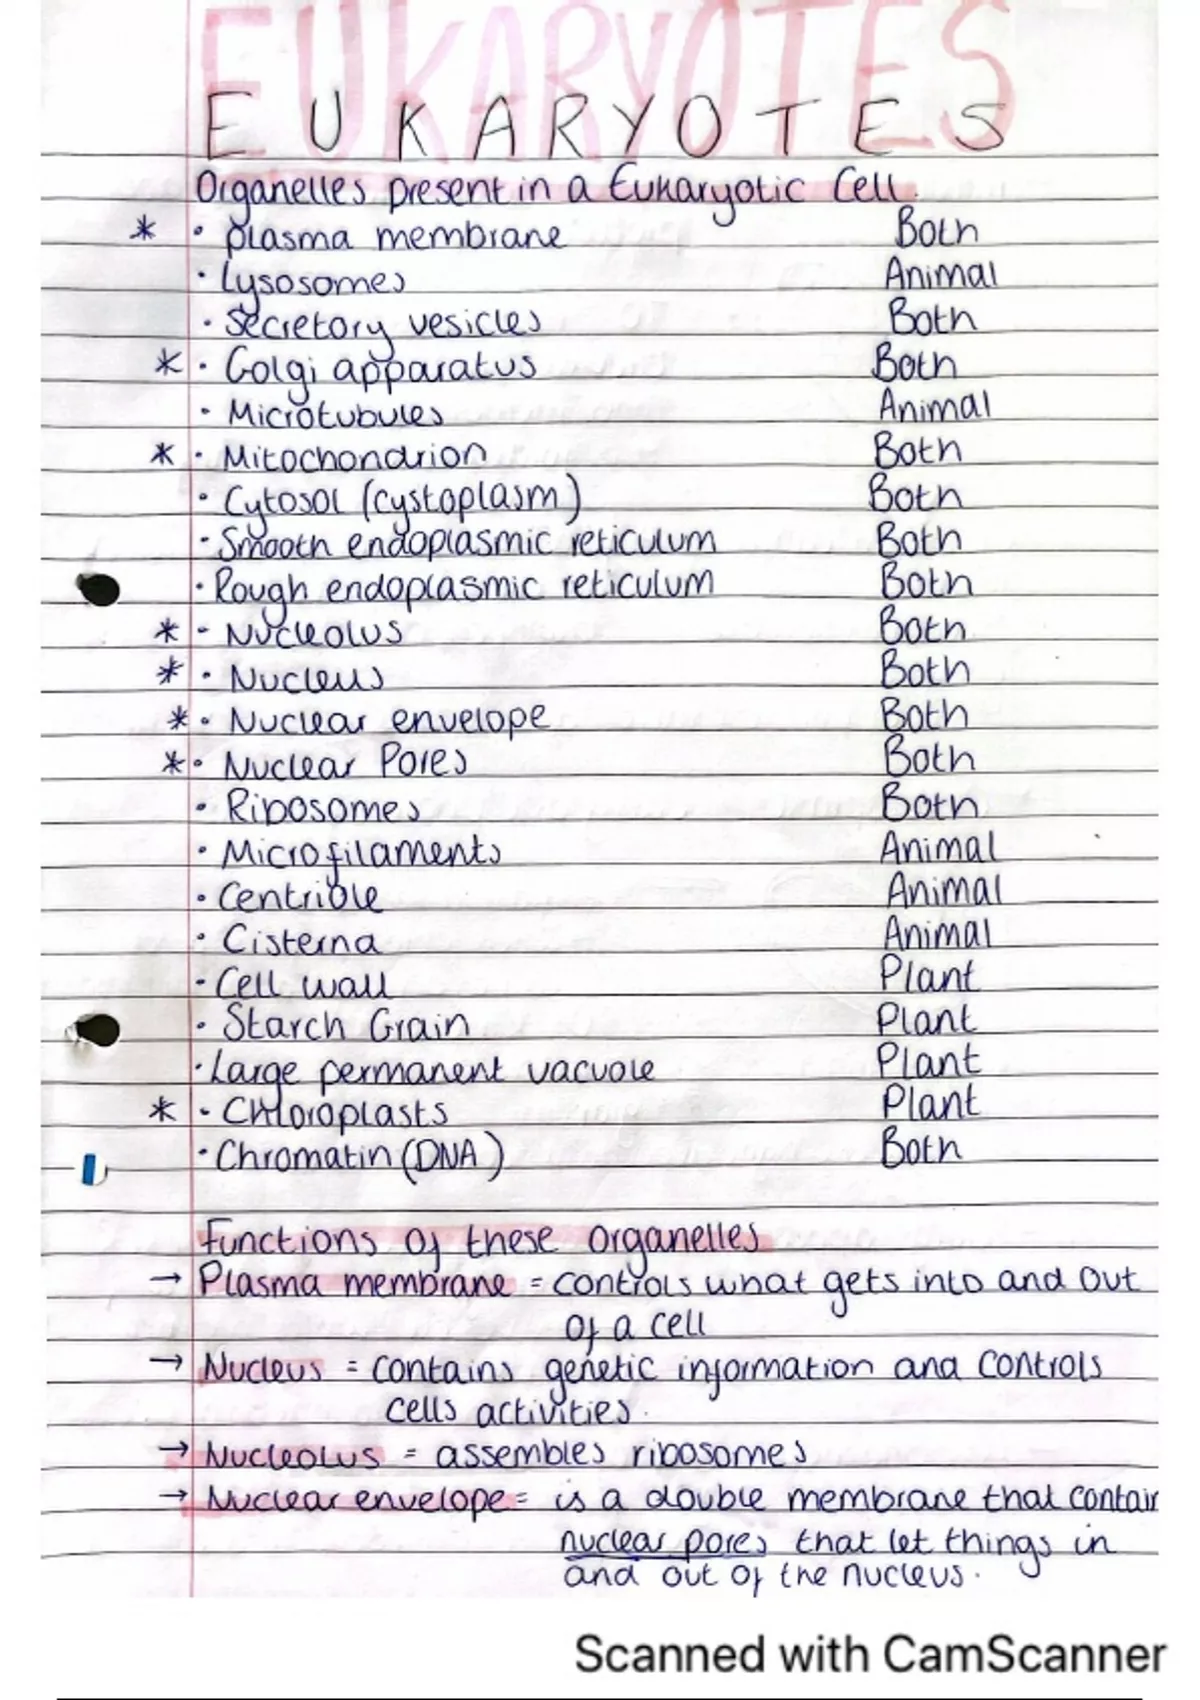 EUKARYOTES
EUKARYOTES
Organelles present in a Eukaryotic Cell.
* • plasma membrane Both
• Lysosomes Animal
• Secretory vesicles Both
* • Golgi apparatus Both
• Microtubules Animal
* • Mitochondrion Both
• Cytosol (cystoplasm) Both
• Smooth endoplasmic reticulum Both
• Rough endoplasmic reticulum Both
* • Nucleolus Both
* • Nucleus Both
* • Nuclear envelope Both
* • Nuclear Pores Both
• Ribosomes Both
• Microfilaments Animal
• Centriole Animal
• Cisterna Animal
• Cell wall Plant
• Starch Grain Plant
• Large permanent vacuole Plant
* • Chloroplasts Plant
• Chromatin (DNA) Both
Functions of these organelles
→ Plasma membrane = controls what gets into and out
of a cell
→ Nucleus = contains genetic information and controls
cells activities.
→ Nucleolus = assembles ribosomes
→ Nuclear envelope = is a double membrane that contain
nuclear pores that let things in
and out of the nucleus.
Scanned with CamScanner